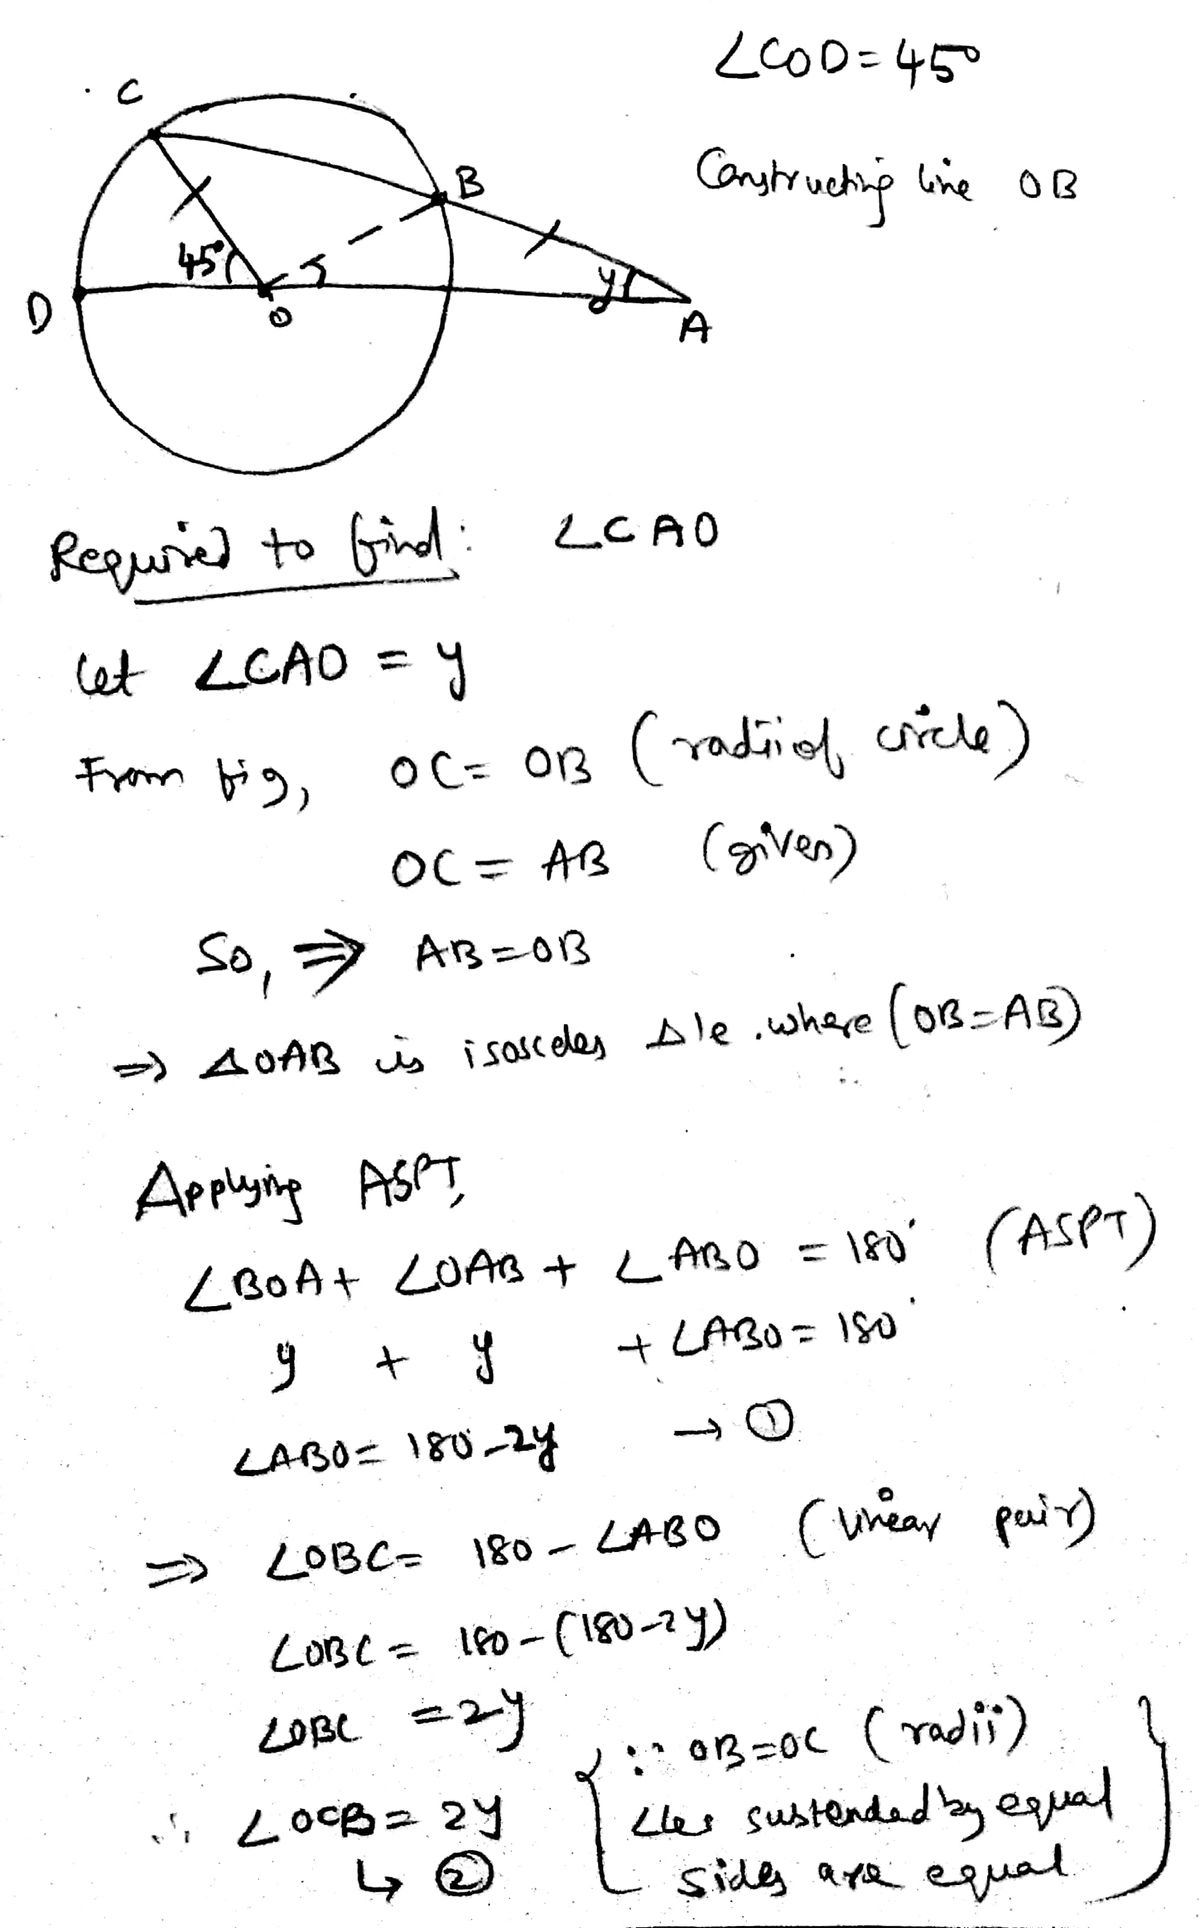 ∠COD = 45°
C
Constructing line OB
B
45°
y
D
O
A
Required to find: ∠CAO
Let ∠CAO = y
From fig, OC = OB (radii of circle)
OC = AB (given)
So, ⇒ AB = OB
⇒ ΔOAB is isosceles Δle. where (OB = AB)
Applying ASPT,
∠BOA + ∠OAB + ∠ABO = 180° (ASPT)
y + y + ∠ABO = 180°
∠ABO = 180 - 2y → ①
⇒ ∠OBC = 180 - ∠ABO (linear pair)
∠OBC = 180 - (180 - 2y)
∠OBC = 2y
∴ ∠OCB = 2y
↳ ②
{ ∵ OB = OC (radii)
∠les sustended by equal
sides are equal }